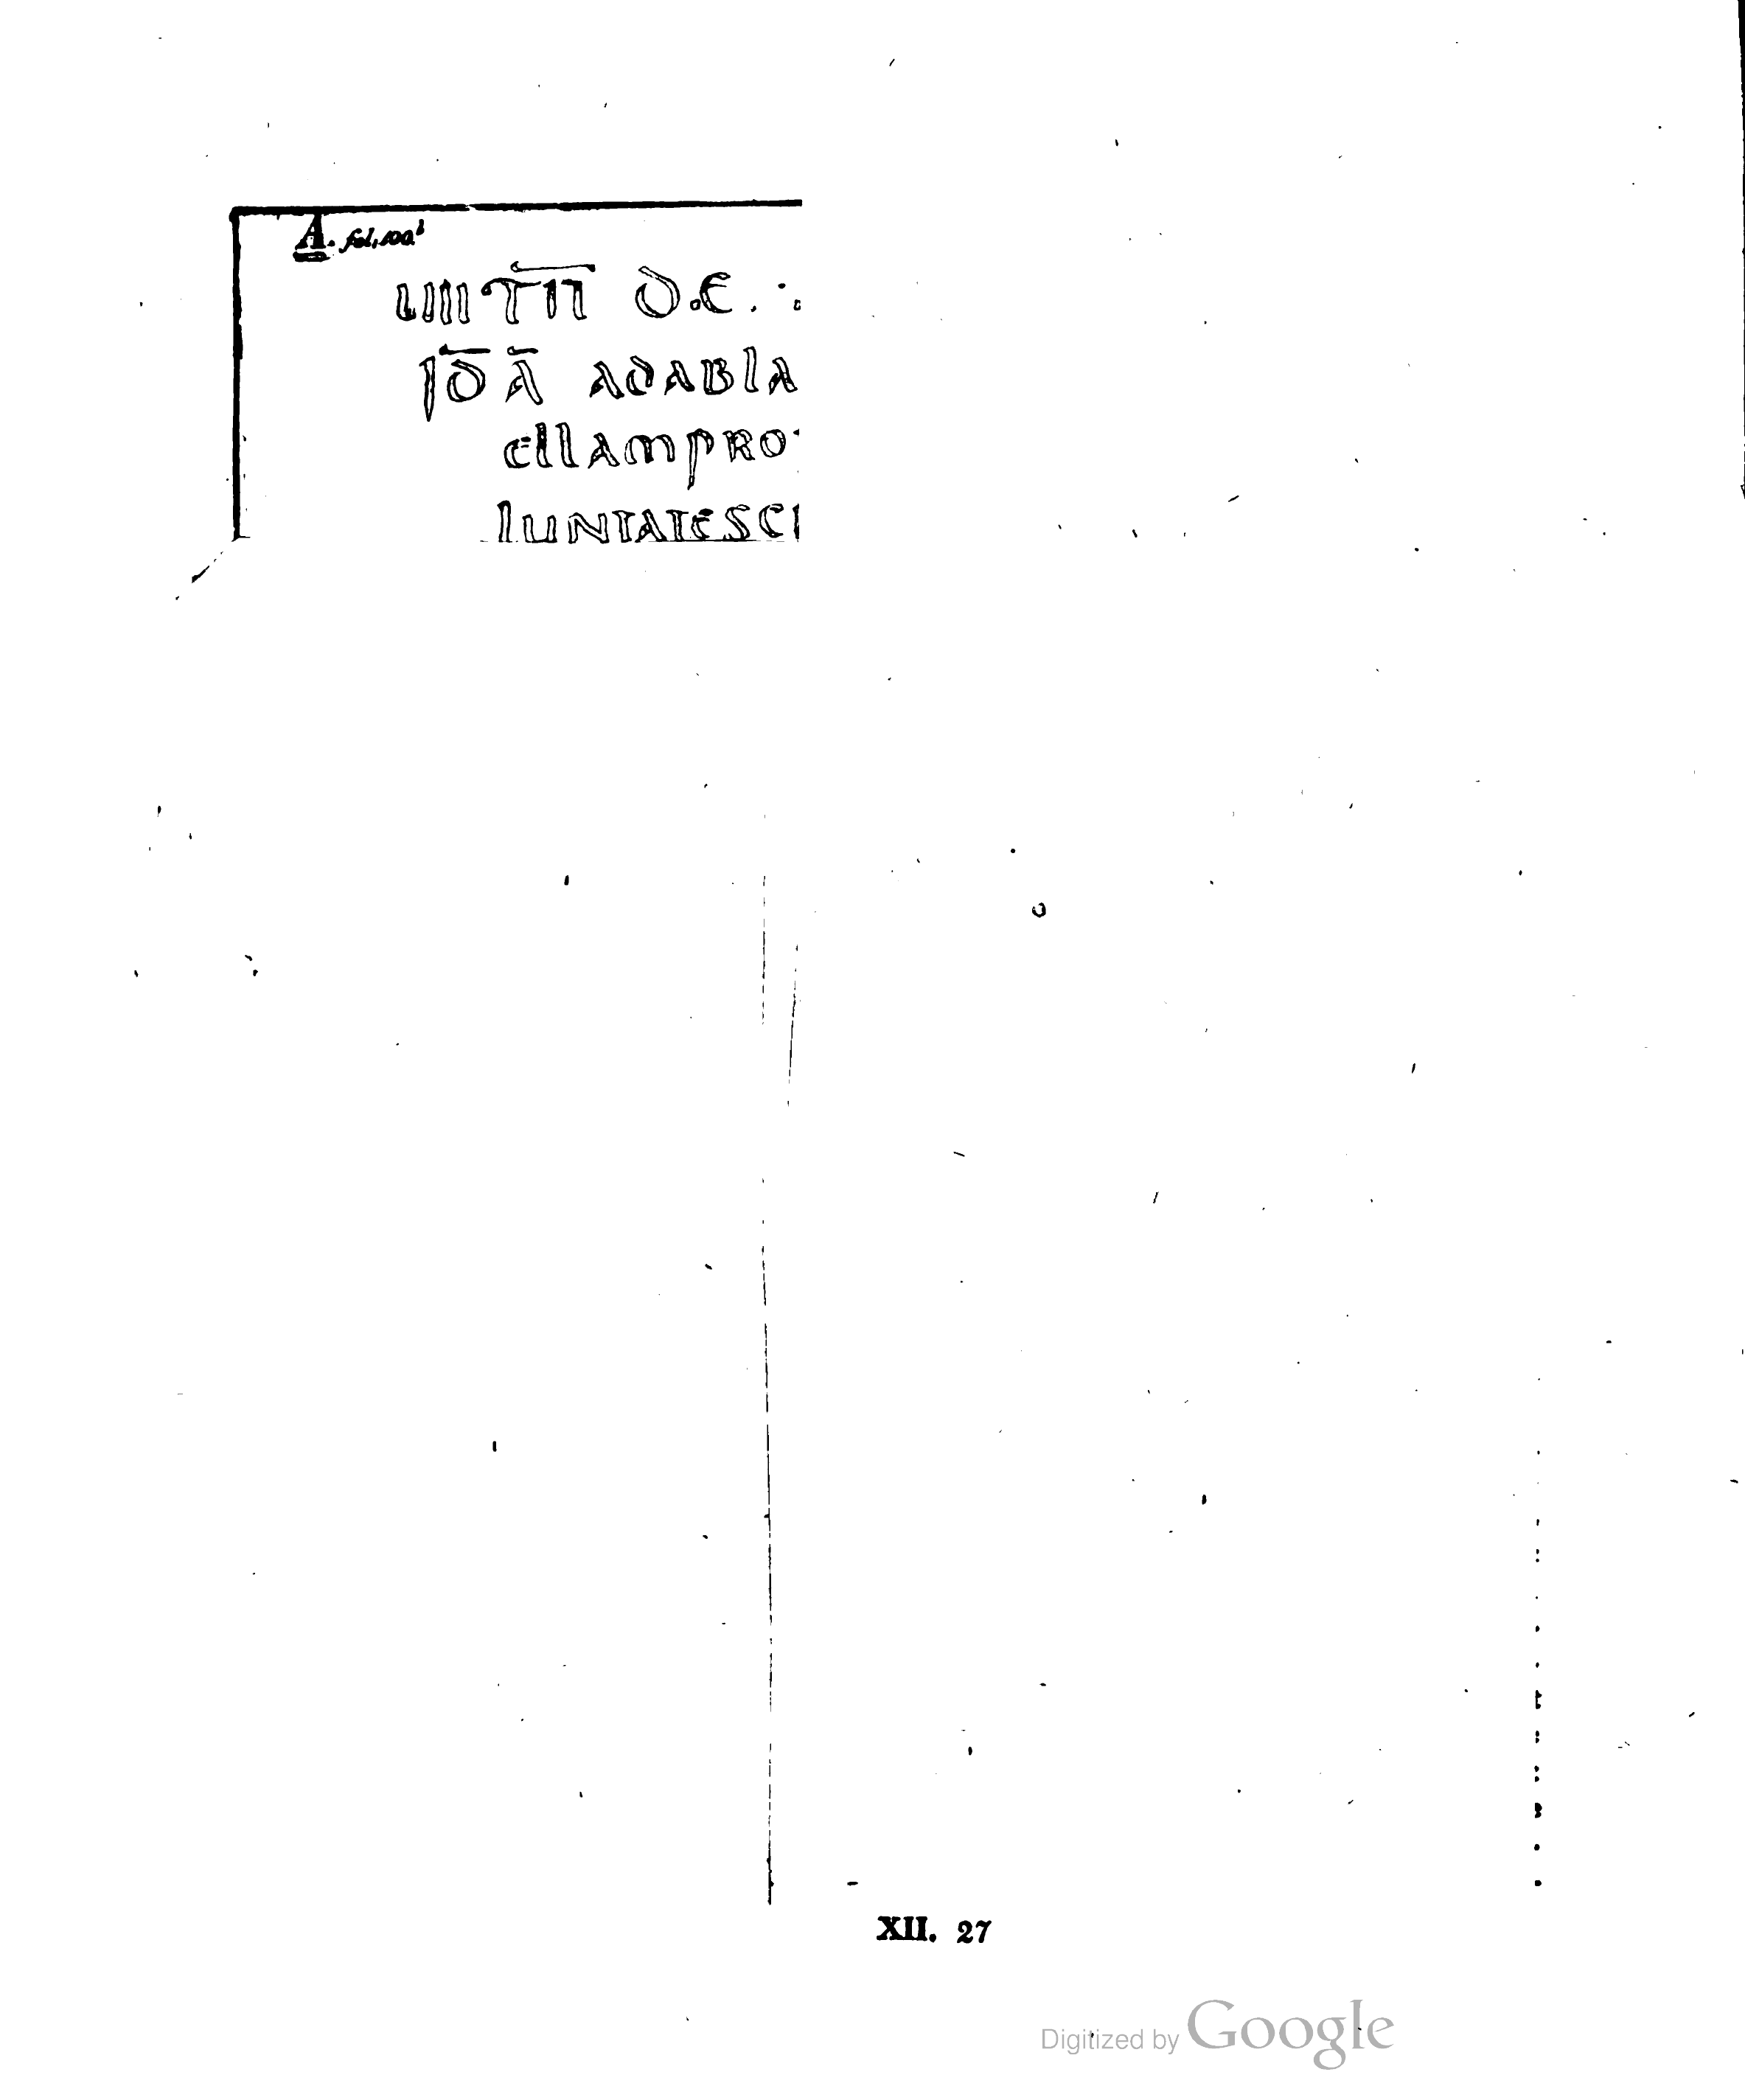 A. fol. 100.b
UIIII T̅I̅I̅ D.E. :
ID̅ Ā ADABLA
ELLAMPRO
LUNTATESCI
XII. 27
Digitized by Google